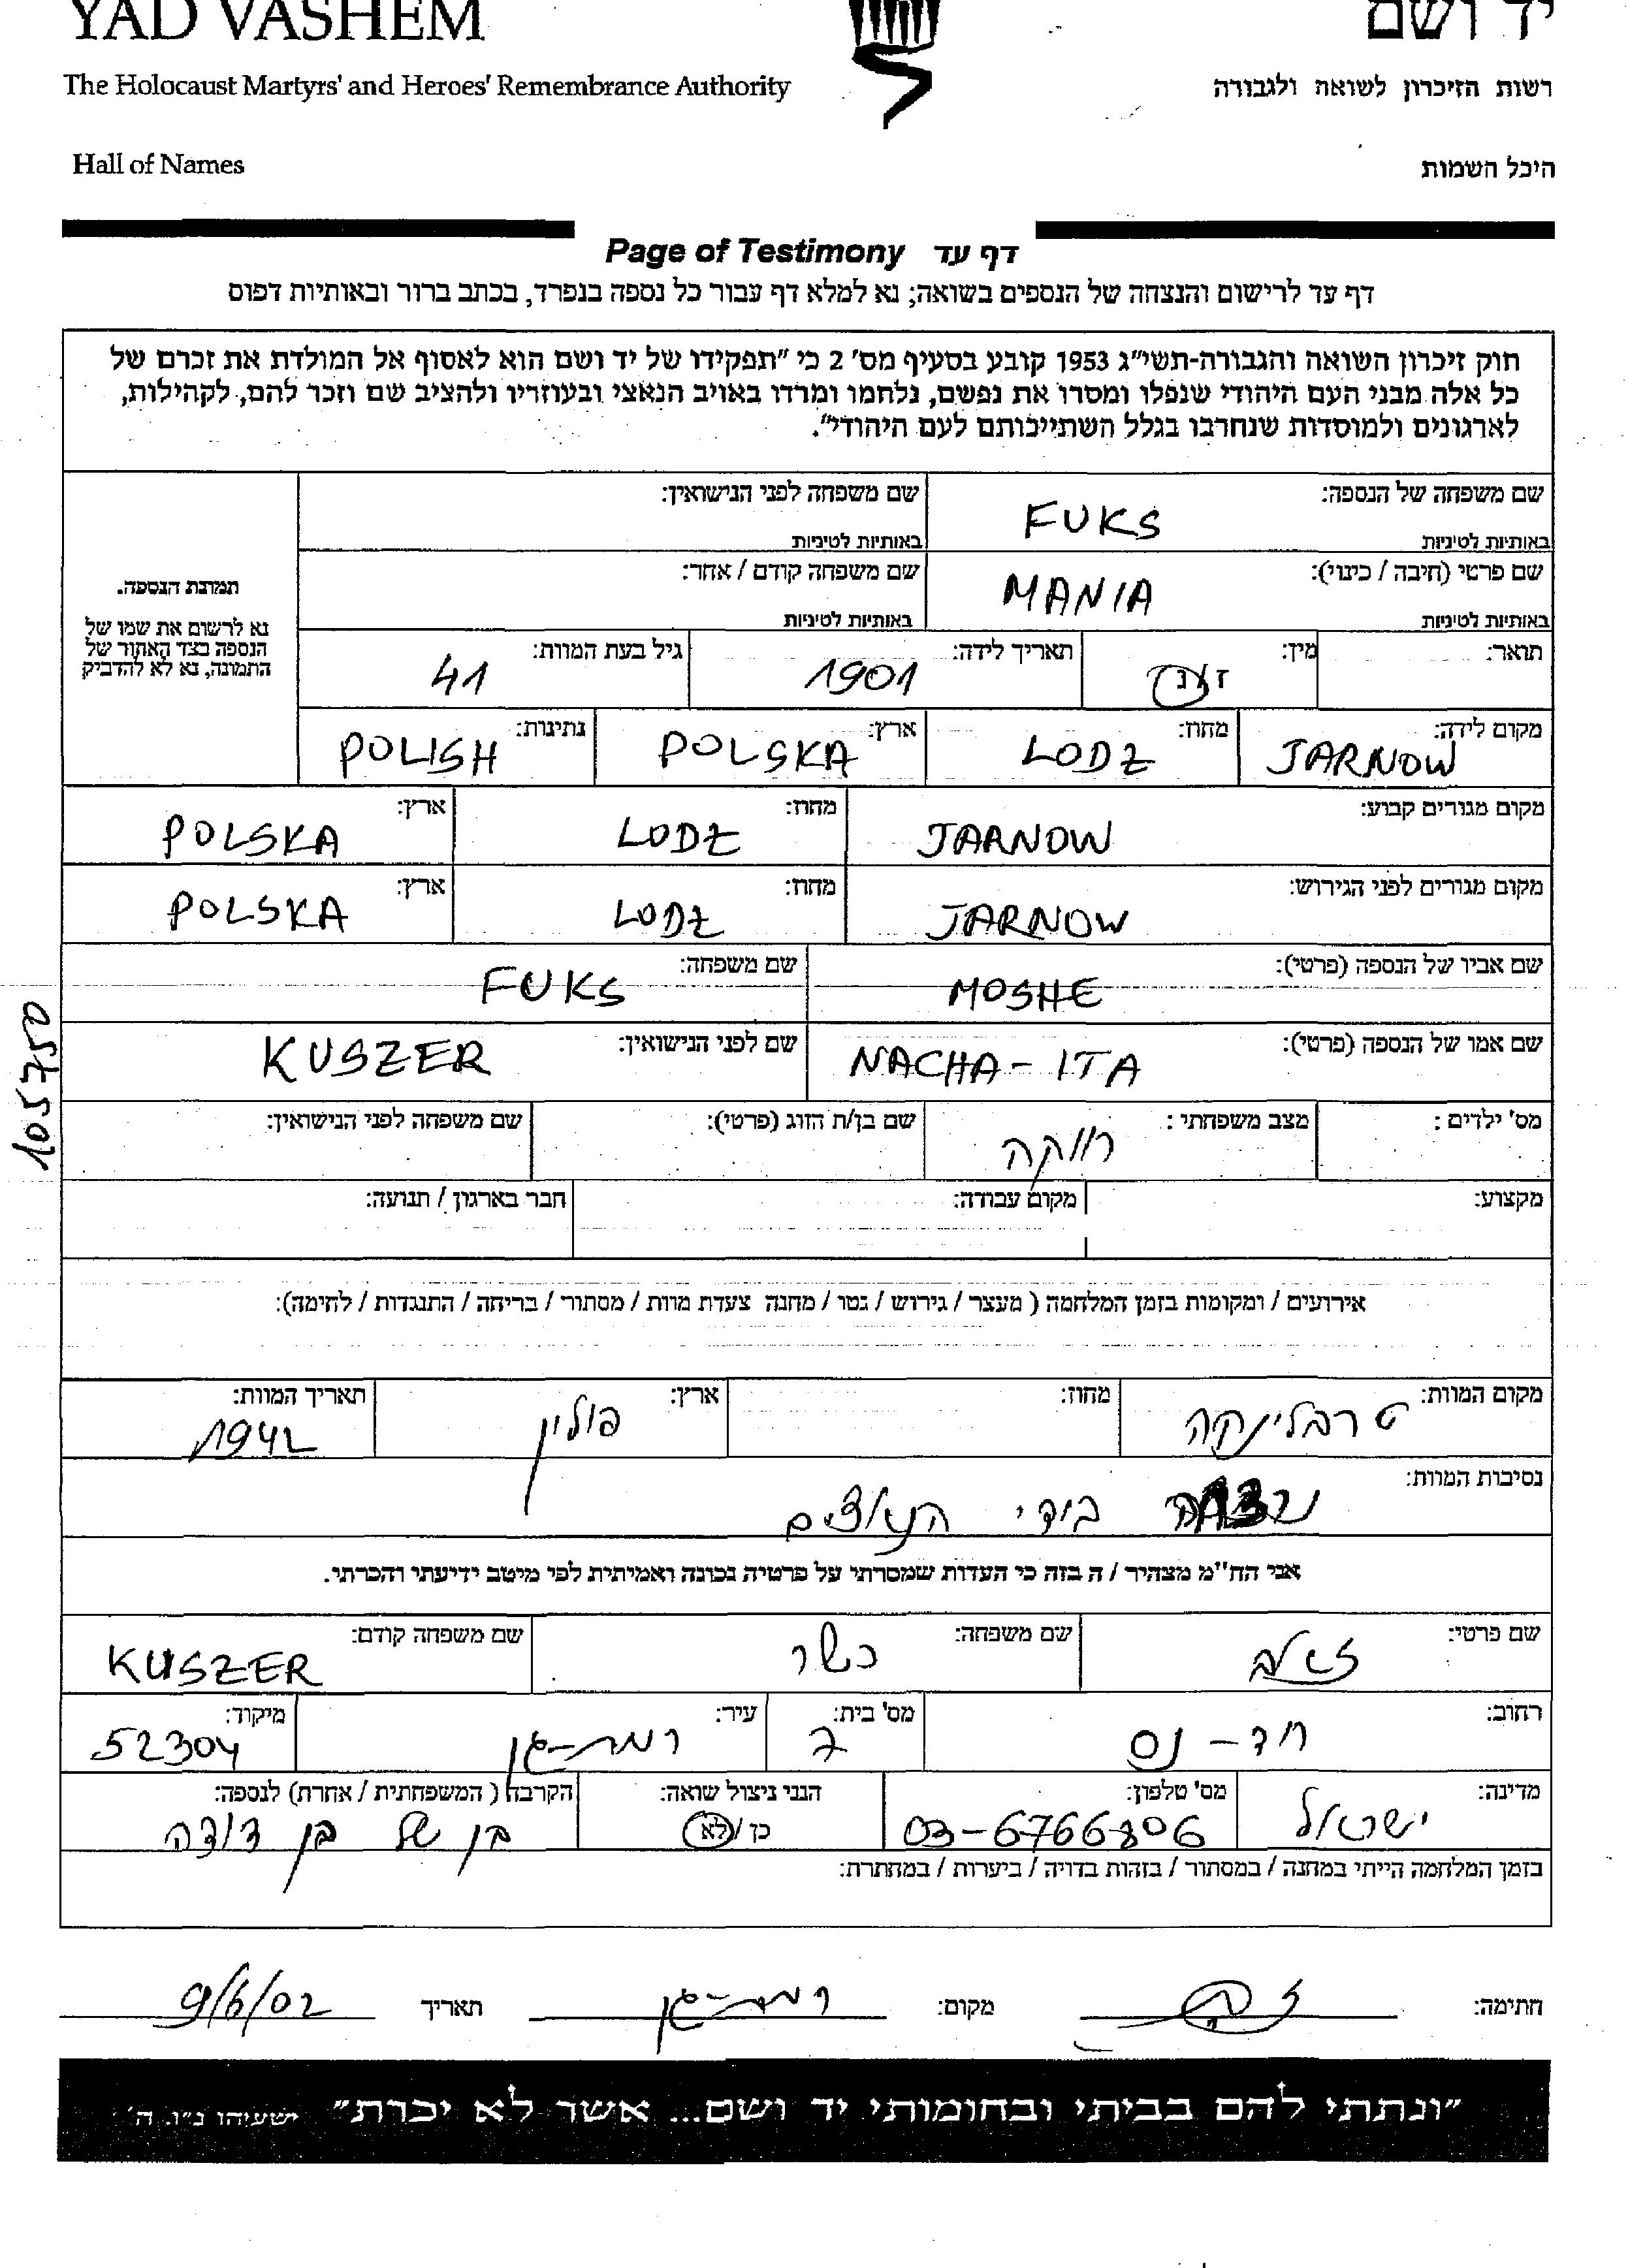 YAD VASHEM יד ושם
The Holocaust Martyrs' and Heroes' Remembrance Authority רשות הזיכרון לשואה ולגבורה
Hall of Names היכל השמות
Page of Testimony דף עד
דף עד לרישום והנצחה של הנספים בשואה; נא למלא דף עבור כל נספה בנפרד, בכתב ברור ובאותיות דפוס
חוק זיכרון השואה והגבורה-תשי"ג 1953 קובע בסעיף מס' 2 כי "תפקידו של יד ושם הוא לאסוף אל המולדת את זכרם של
כל אלה מבני העם היהודי שנפלו ומסרו את נפשם, נלחמו ומרדו באויב הנאצי ובעוזריו ולהציב שם וזכר להם, לקהילות,
לארגונים ולמוסדות שנחרבו בגלל השתייכותם לעם היהודי".
שם משפחה של הנספה: FUKS שם משפחה לפני הנישואין:
באותיות לטיניות באותיות לטיניות
שם פרטי (חיבה / כינוי): MANIA שם משפחה קודם / אחר:
באותיות לטיניות באותיות לטיניות
תמונת הנספה.
נא לרשום את שמו של
הנספה בצד האחור של
התמונה, נא לא להדביק
תואר: מין: ז/נ תאריך לידה: 1901 גיל בעת המוות: 41
מקום לידה: JARNOW מחוז: LODZ ארץ: POLSKA נתינות: POLISH
מקום מגורים קבוע: JARNOW מחוז: LODZ ארץ: POLSKA
מקום מגורים לפני הגירוש: JARNOW מחוז: LODZ ארץ: POLSKA
שם אביו של הנספה (פרטי): MOSHE שם משפחה: FUKS
שם אמו של הנספה (פרטי): NACHA-ITA שם לפני הנישואין: KUSZER
105750
מס' ילדים: מצב משפחתי: רווקה שם בן/ת הזוג (פרטי): שם משפחה לפני הנישואין:
מקצוע: מקום עבודה: חבר בארגון / תנועה:
אירועים / ומקומות בזמן המלחמה ( מעצר / גירוש / גטו / מחנה צעדת מוות / מסתור / בריחה / התנגדות / לחימה):
מקום המוות: טרבלינקה מחוז: ארץ: פולין תאריך המוות: 1942
נסיבות המוות: נרצחה בידי הנאצים
אני הח"מ מצהיר / ה בזה כי העדות שמסרתי על פרטיה נכונה ואמיתית לפי מיטב ידיעתי והכרתי.
שם פרטי: זאב שם משפחה: כשר שם משפחה קודם: KUSZER
רחוב: חד-נס מס' בית: 7 עיר: רמת-גן מיקוד: 52304
מדינה: ישראל מס' טלפון: 03-6766806 הנני ניצול שואה: כן / לא הקרבה ( המשפחתית / אחרת) לנספה: בן של בן דודה
בזמן המלחמה הייתי במחנה / במסתור / בזהות בדויה / ביערות / במחתרת:
חתימה: מקום: רמת-גן תאריך 9/6/02
"ונתתי להם בביתי ובחומותי יד ושם... אשר לא יכרת" ישעיהו נ"ו, ה'